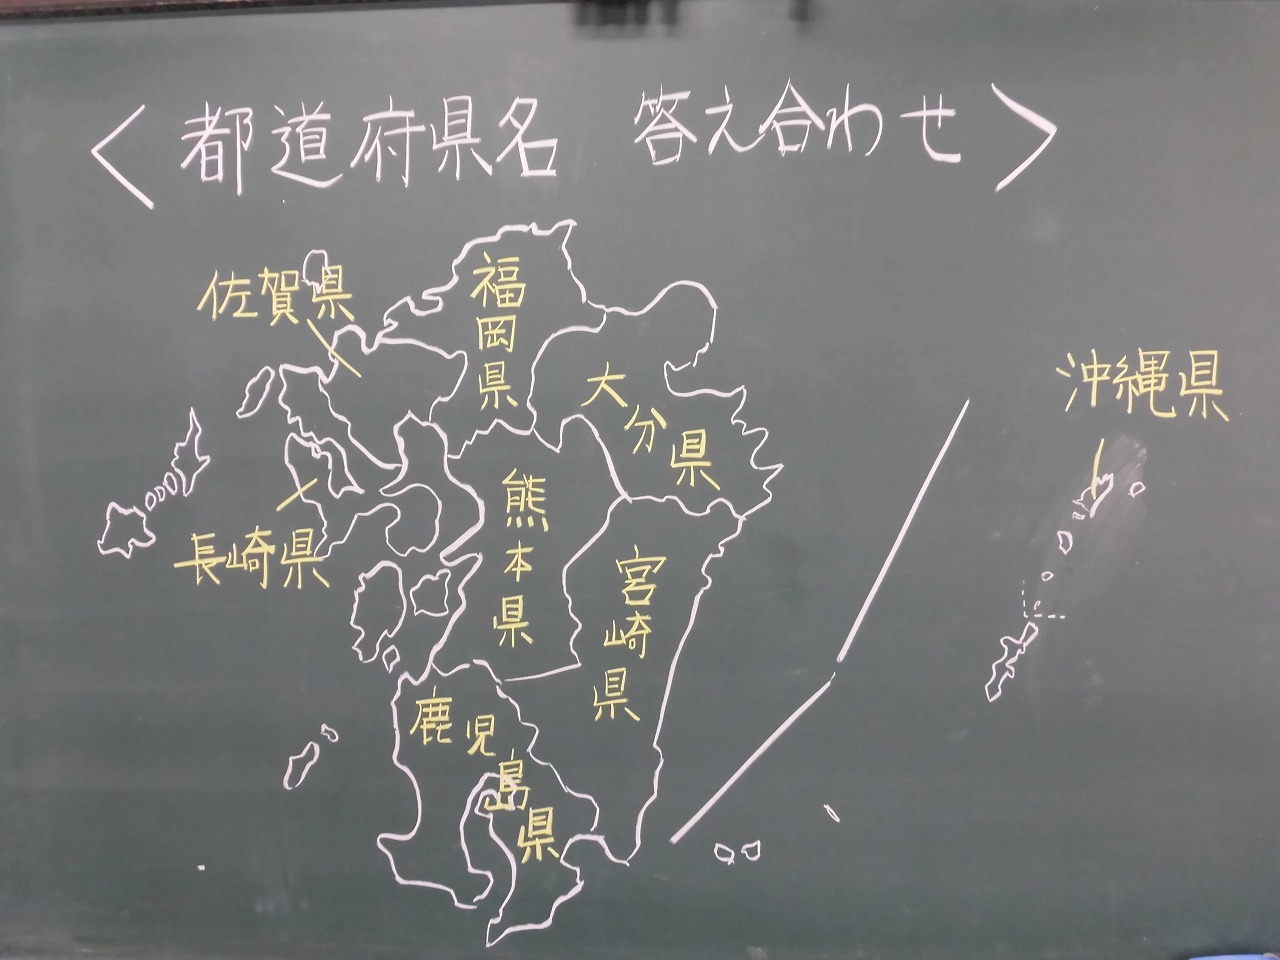 〈都道府県名 答え合わせ〉
佐賀県
福岡県
大分県
長崎県
熊本県
宮崎県
鹿児島県
沖縄県